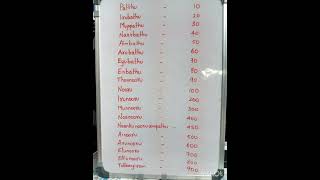 Paththu - 10
Irubathu - 20
Muppathu - 30
Narpathu - 40
Aimbathu - 50
Arubathu - 60
Ezhubathu - 70
Enbathu - 80
Thonnooru - 90
Nooru - 100
Irunooru - 200
Munnooru - 300
Nanooru - 400
- 450
Ainooru - 500
Arunooru - 600
Elunooru - 700
Ettunooru - 800
- 900